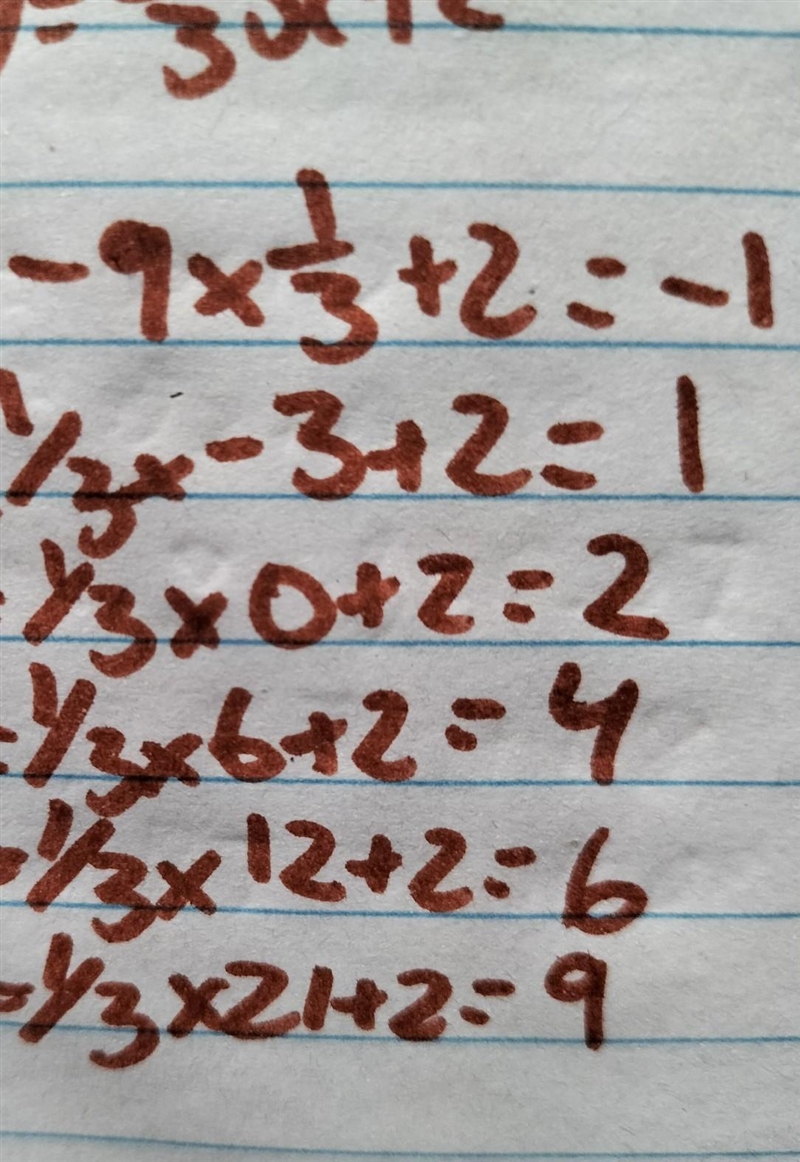 - 9 × 1/3 + 2 = - 1
1/3 × - 3 + 2 = 1
= 1/3 × 0 + 2 = 2
= 1/3 × 6 + 2 = 4
= 1/3 × 12 + 2 = 6
= 1/3 × 21 + 2 = 9